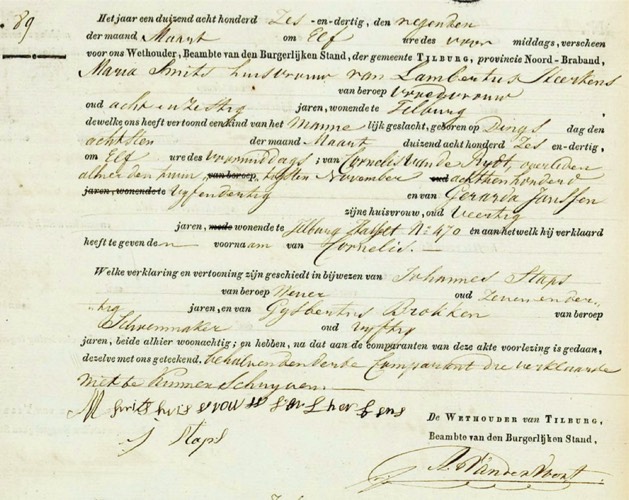 89
Het jaar een duizend acht honderd Zes -en-dertig, den negenden
der maand Maart om Elf ure des voor middags, verscheen
voor ons Wethouder, Beambte van den Burgerlijken Stand, der gemeente TILBURG, provincie Noord-Braband,
Maria Smits huisvrouw van Lambertus
van beroep Vroedvrouw
oud acht en Zestig jaren, wonende te Tilburg
dewelke ons heeft vertoond een kind van het Manne lijk geslacht, geboren op Dings dag den
achtsten der maand Maart duizend acht honderd Zes en-dertig,
om Elf ure des voormiddags; van Cornelis van de overleden
van beroep, November oud achttienhonderd
jaren, wonende te vyfendertig en van Gerarda Janssen
zijne huisvrouw, oud Veertig
jaren, mede wonende te Tilburg Hasselt No 470 en aan hetwelk hij verklaard
heeft te geven den voornaam van Cornelis.
Welke verklaring en vertooning zijn geschiedt in bijwezen van Johannes Staps
van beroep Wever oud Zeven en der-
tig jaren, en van Gysbertus Brokken van beroep
Schoenmaker oud Vyftig
jaren, beide alhier woonachtig; en hebben, na dat aan de comparanten van deze akte voorlezing is gedaan,
dezelve met ons geteekend, behalven den derde Comparant die verklaarde
niet te kunnen Schryven.
M Smits huis vrouw
J Staps
De WETHOUDER van TILBURG,
Beambte van den Burgerlijken Stand,